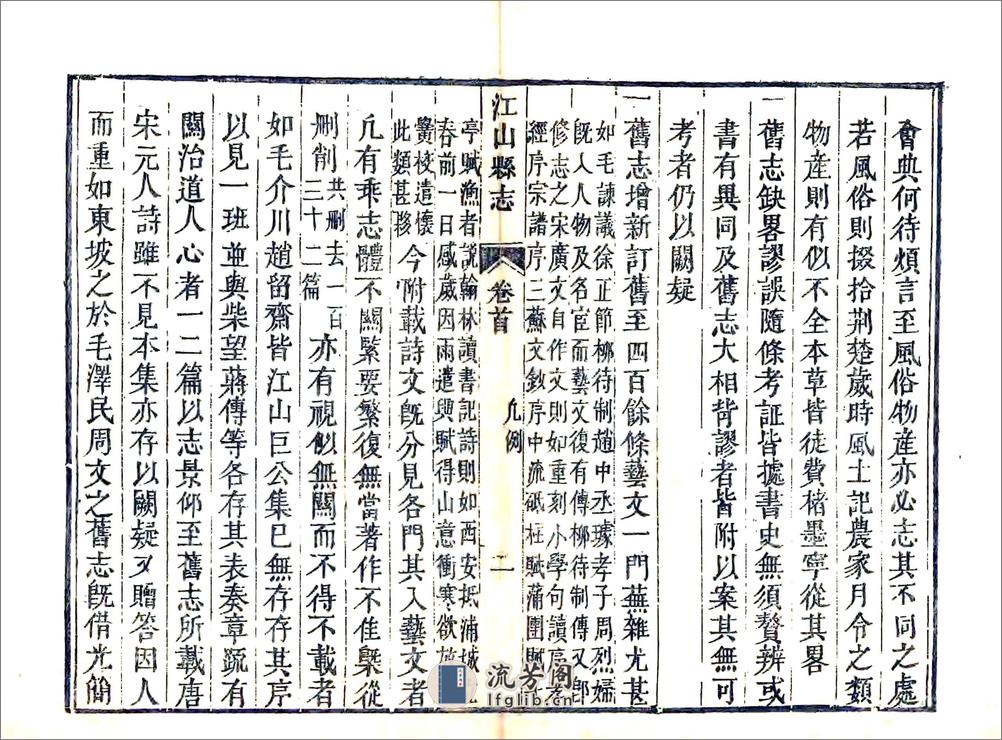 會典何待煩言至風俗物產亦必志其不同之處
若風俗則掇拾荆楚歲時風土記農家月令之類
物產則有似不全本草皆徒費楮墨寧從其畧
一舊志缺畧謬誤隨條考証皆據書史無須贅辨或
書有異同及舊志大相背謬者皆附以案其無可
考者仍以闕疑
一舊志增新訂舊至四百餘條藝文一門蕪雜尤甚
如毛諫議徐正節柳待制趙中丞璩孝子周烈婦
既入人物及名宦而藝文復有傳柳待制傳又郎
修志之宋廣文自作文則如重刻小學句讀序
經序宗譜序三蘇文鈔序中流砥柱賦蒲團賦
江山縣志 卷首 凡例 二
亭賦漁者說翰林讀書記詩則如西安抵浦城
春前一日感歲因雨遣興賦得山意衝寒欲放
黌校遣懷
此類甚夥
今附載詩文既分見各門其入藝文者
凡有乖志體不關緊要繁復無當著作不佳槩從
刪削
共刪去一百
三十二篇
亦有視似無關而不得不載者
如毛介川趙留齋皆江山巨公集已無存存其序
以見一班並與柴望蔣傳等各存其表奏章疏有
關治道人心者一二篇以志景仰至舊志所載唐
宋元人詩雖不見本集亦存以闕疑又贈答因人
而重如東坡之於毛澤民周文之舊志既借光簡
流芳閣
lfglib.cn